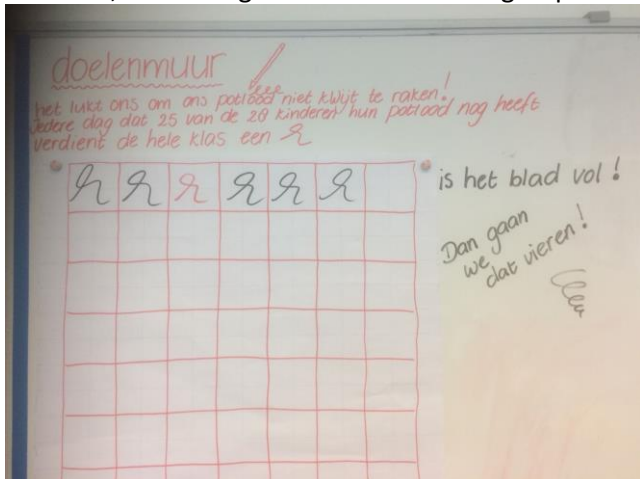 doelenmuur
het lukt ons om ons potlood niet kwijt te raken!
Iedere dag dat 25 van de 28 kinderen hun potlood nog heeft
verdient de hele klas een
is het blad vol!
Dan gaan
we
dat vieren!